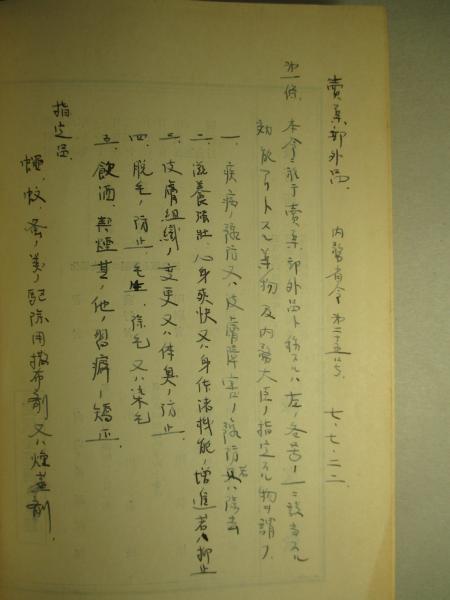 賣薬部外品 内務省令第二五号 七、七、二二
第一條 本令ニ於テ賣薬部外品ト称スルハ左ノ各号ノ一ニ該当スル
効能アリトスル薬物及内務大臣ノ指定スル物ヲ謂フ
一、疾病ノ豫防又ハ皮膚障害ノ豫防若ハ除去
二、滋養強壮、心身爽快又ハ身体諸機能ノ増進若ハ抑止
三、皮膚組織ノ変更又ハ体臭ノ防止
四、脱毛ノ防止、毛生、除毛又ハ染毛
五、飲酒、喫煙其ノ他ノ習癖ノ矯正
指定品
蠅、蚊、蚤ノ類ノ駆除用撒布剤又ハ燻蒸剤